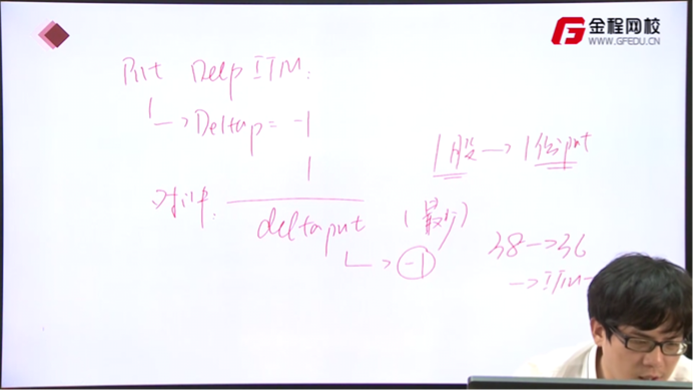 金程网校
WWW.GFEDU.CN
Put Deep ITM:
↳Deltap = -1
1股→1份put
1
对冲
deltaput (最小)
↳ -1
38→36
→ITM